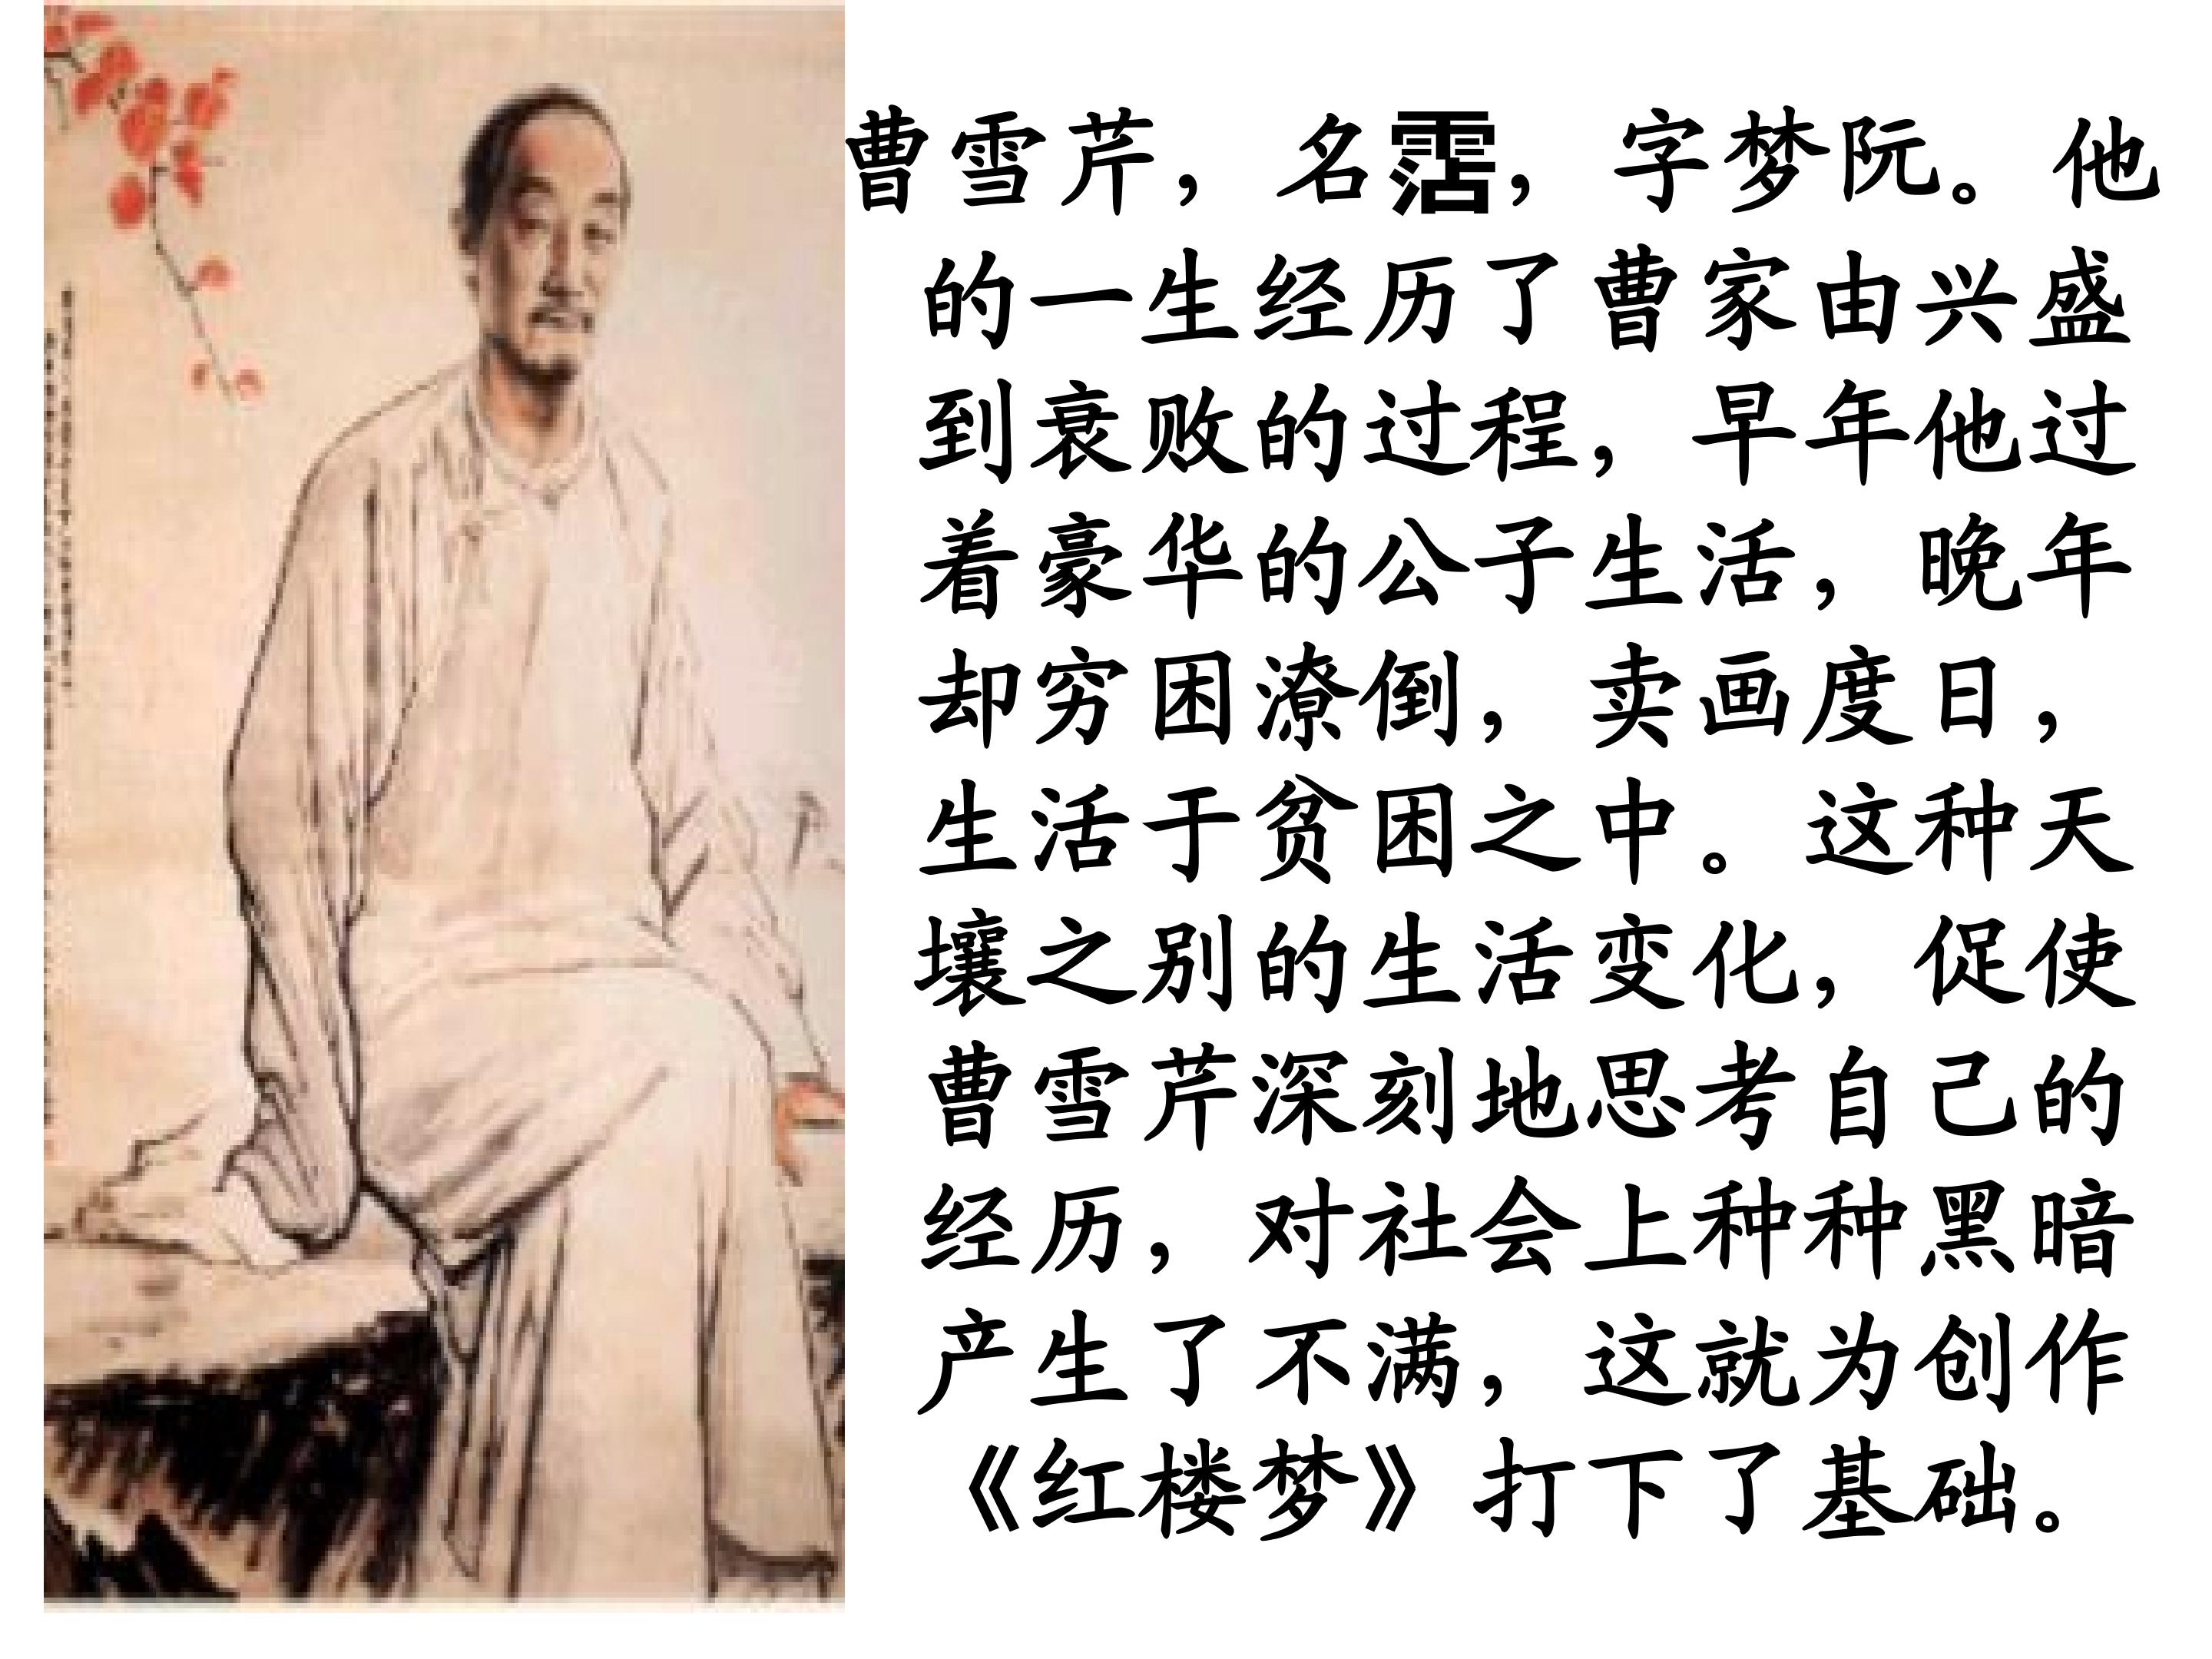 曹雪芹，名霑，字梦阮。他
的一生经历了曹家由兴盛
到衰败的过程，早年他过
着豪华的公子生活，晚年
却穷困潦倒，卖画度日，
生活于贫困之中。这种天
壤之别的生活变化，促使
曹雪芹深刻地思考自己的
经历，对社会上种种黑暗
产生了不满，这就为创作
《红楼梦》打下了基础。